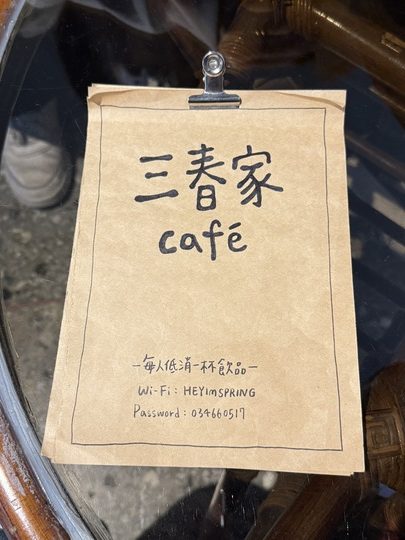 三春家
café
–每人低消一杯飲品–
Wi-Fi : HEYimSPRING
Password : 034660517